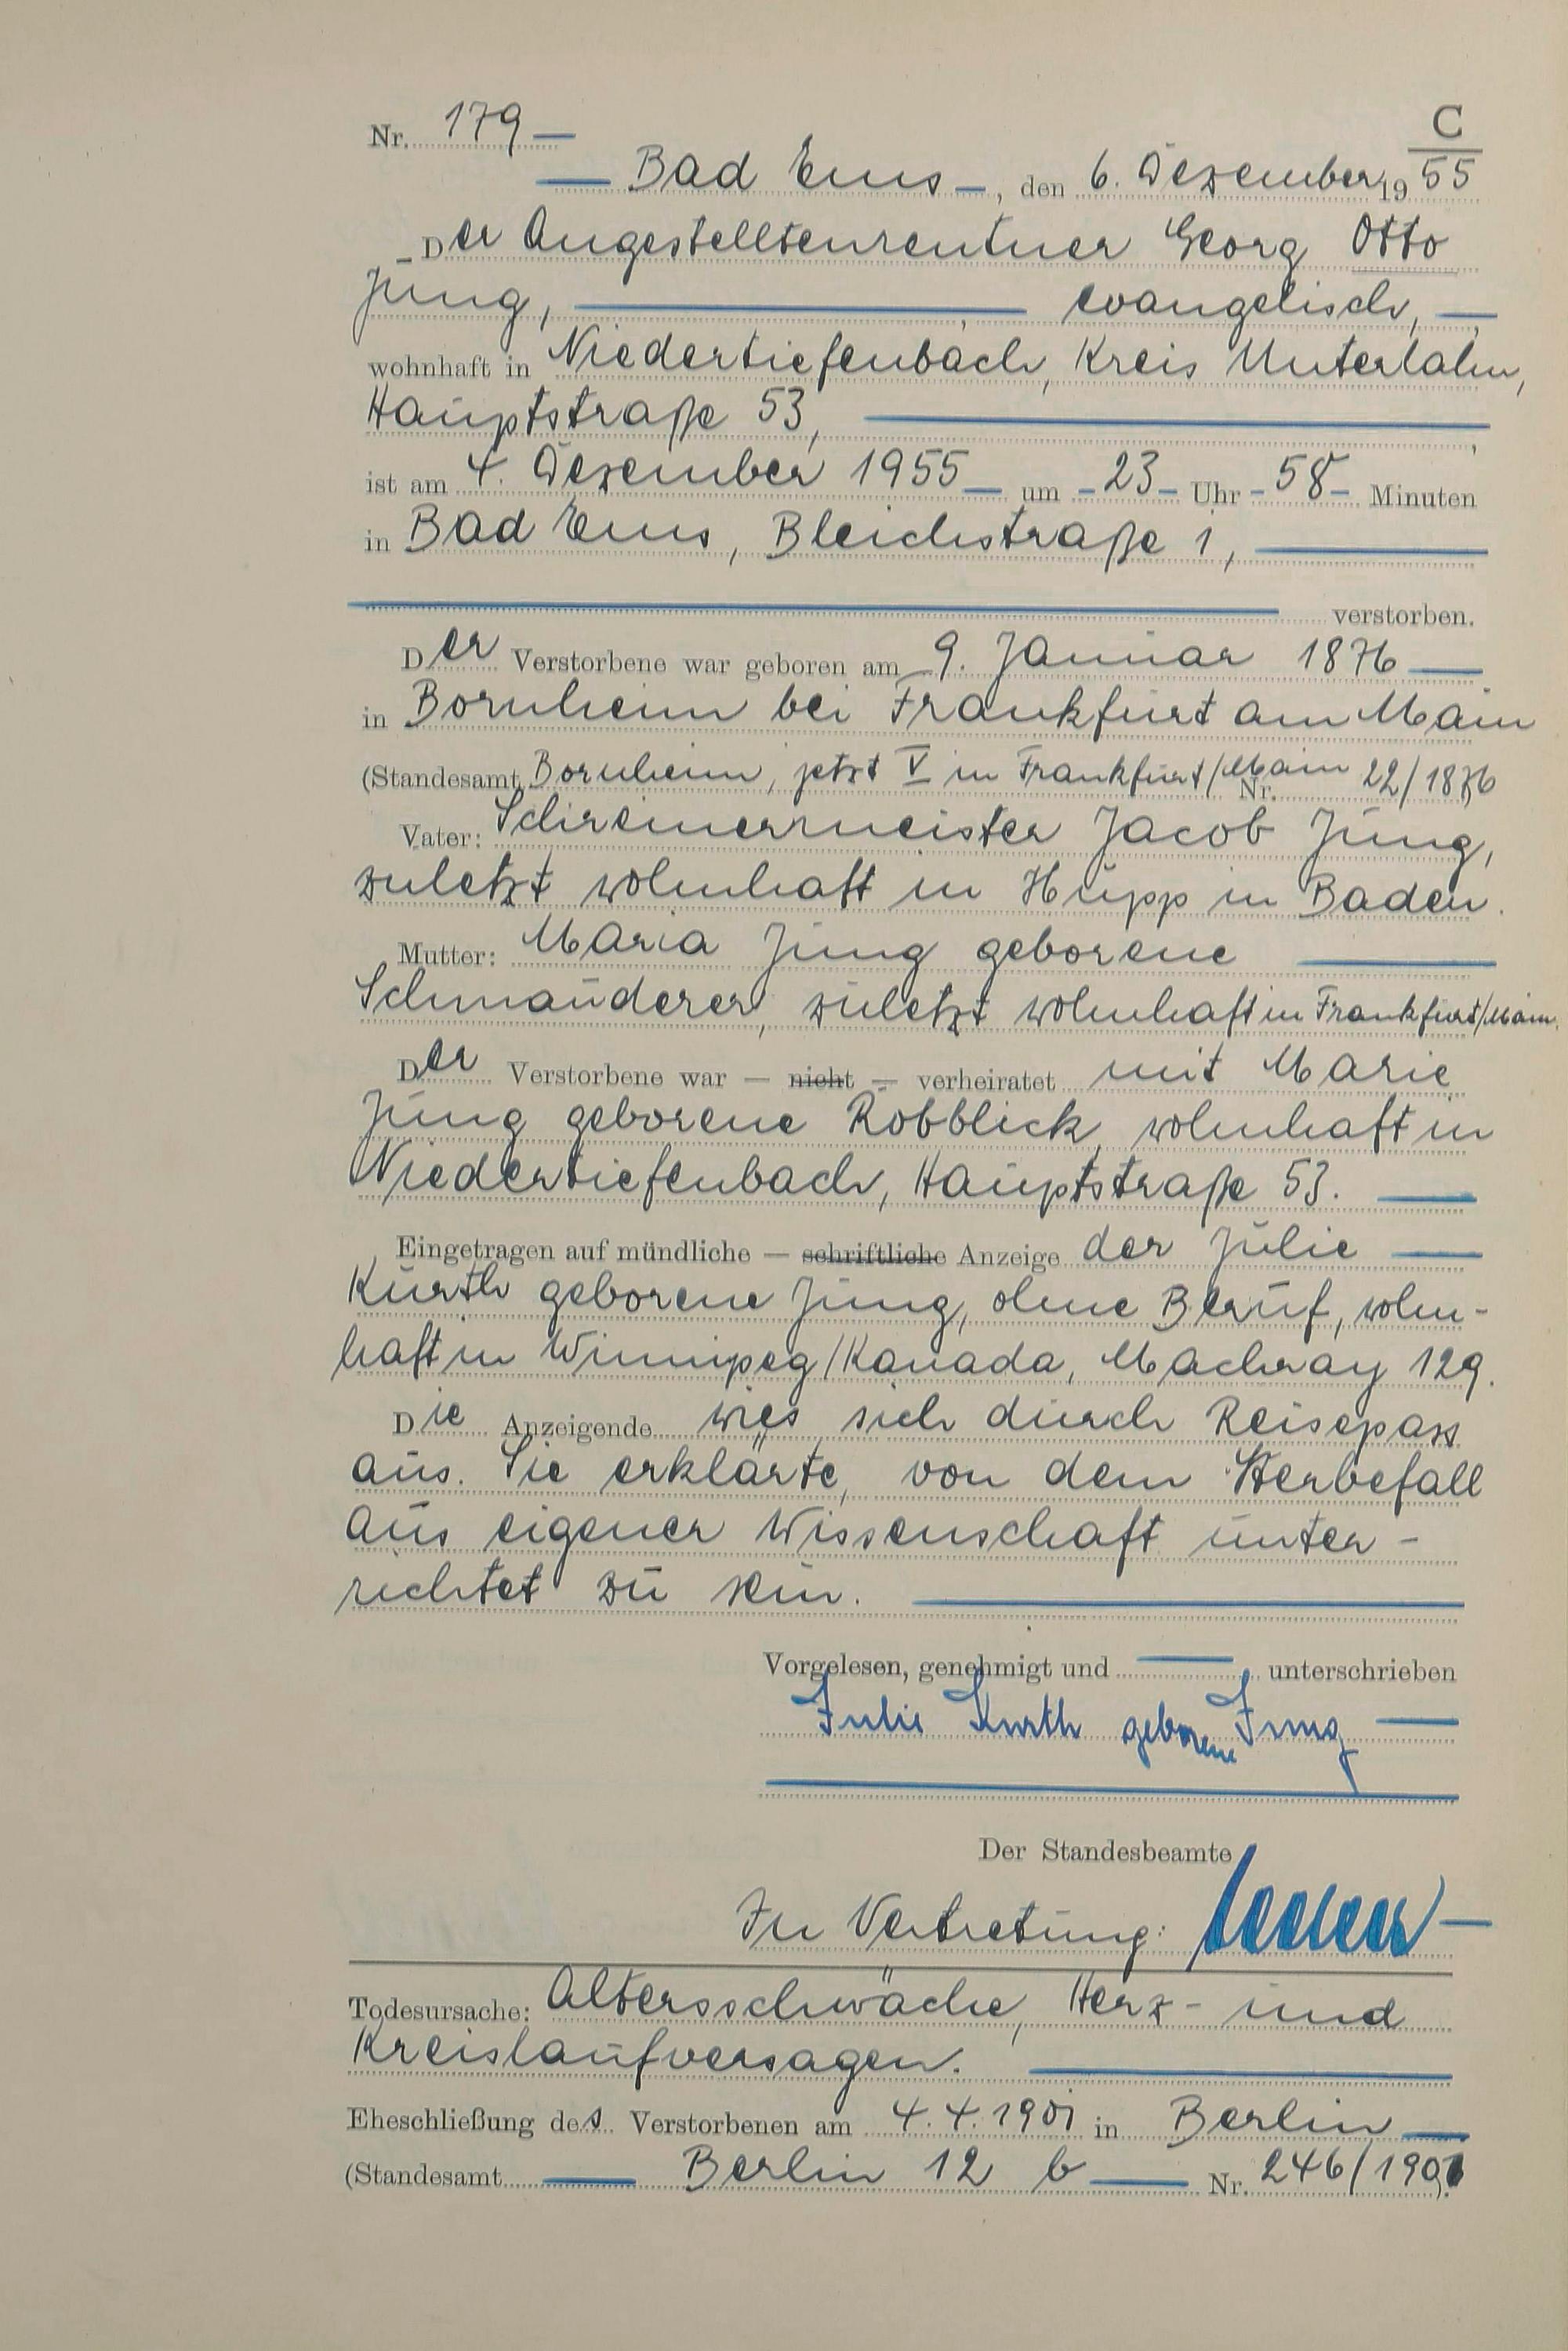 Nr. 179 –
C
– Bad Ems –, den 6. Dezember 19 55
– Der Angestelltenrentner Georg Otto
Jung, evangelisch,
wohnhaft in Niedertiefenbach, Kreis Unterlahn,
Hauptstraße 53,
ist am 4. Dezember 1955 – um – 23 – Uhr – 58 – Minuten
in Bad Ems, Bleichstraße 1,
verstorben.
Der Verstorbene war geboren am 9. Januar 1876 –
in Bornheim bei Frankfurt am Main
(Standesamt Bornheim, jetzt V in Frankfurt/Main Nr. 22/1876
Vater: Schreinermeister Jacob Jung,
zuletzt wohnhaft in Hupp in Baden.
Mutter: Maria Jung geborene
Schmauderer, zuletzt wohnhaft in Frankfurt/Main.
Der Verstorbene war – nicht – verheiratet mit Marie
Jung geborene Robblick, wohnhaft in
Niedertiefenbach, Hauptstraße 53.
Eingetragen auf mündliche – schriftliche Anzeige der Julie
Kurth geborene Jung, ohne Beruf, wohn-
haft in Winnipeg/Kanada, Machray 129.
Die Anzeigende wies sich durch Reisepass
aus. Sie erklärte, von dem Sterbefall
aus eigener Wissenschaft unter-
richtet zu sein.
Vorgelesen, genehmigt und unterschrieben
Julie Kurth geborene Jung
Der Standesbeamte
In Vertretung:
Todesursache: Altersschwäche, Herz- und
Kreislaufversagen.
Eheschließung des Verstorbenen am 4.4.1901 in Berlin
(Standesamt Berlin 12 b Nr. 246/1901